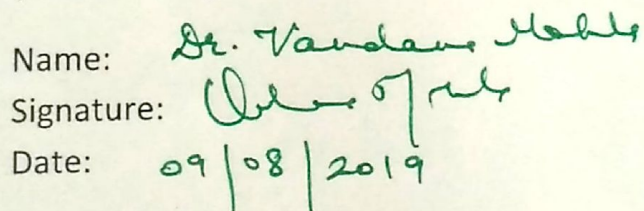 Name: Dr. Vandana
Signature:
Date: 09/08/2019